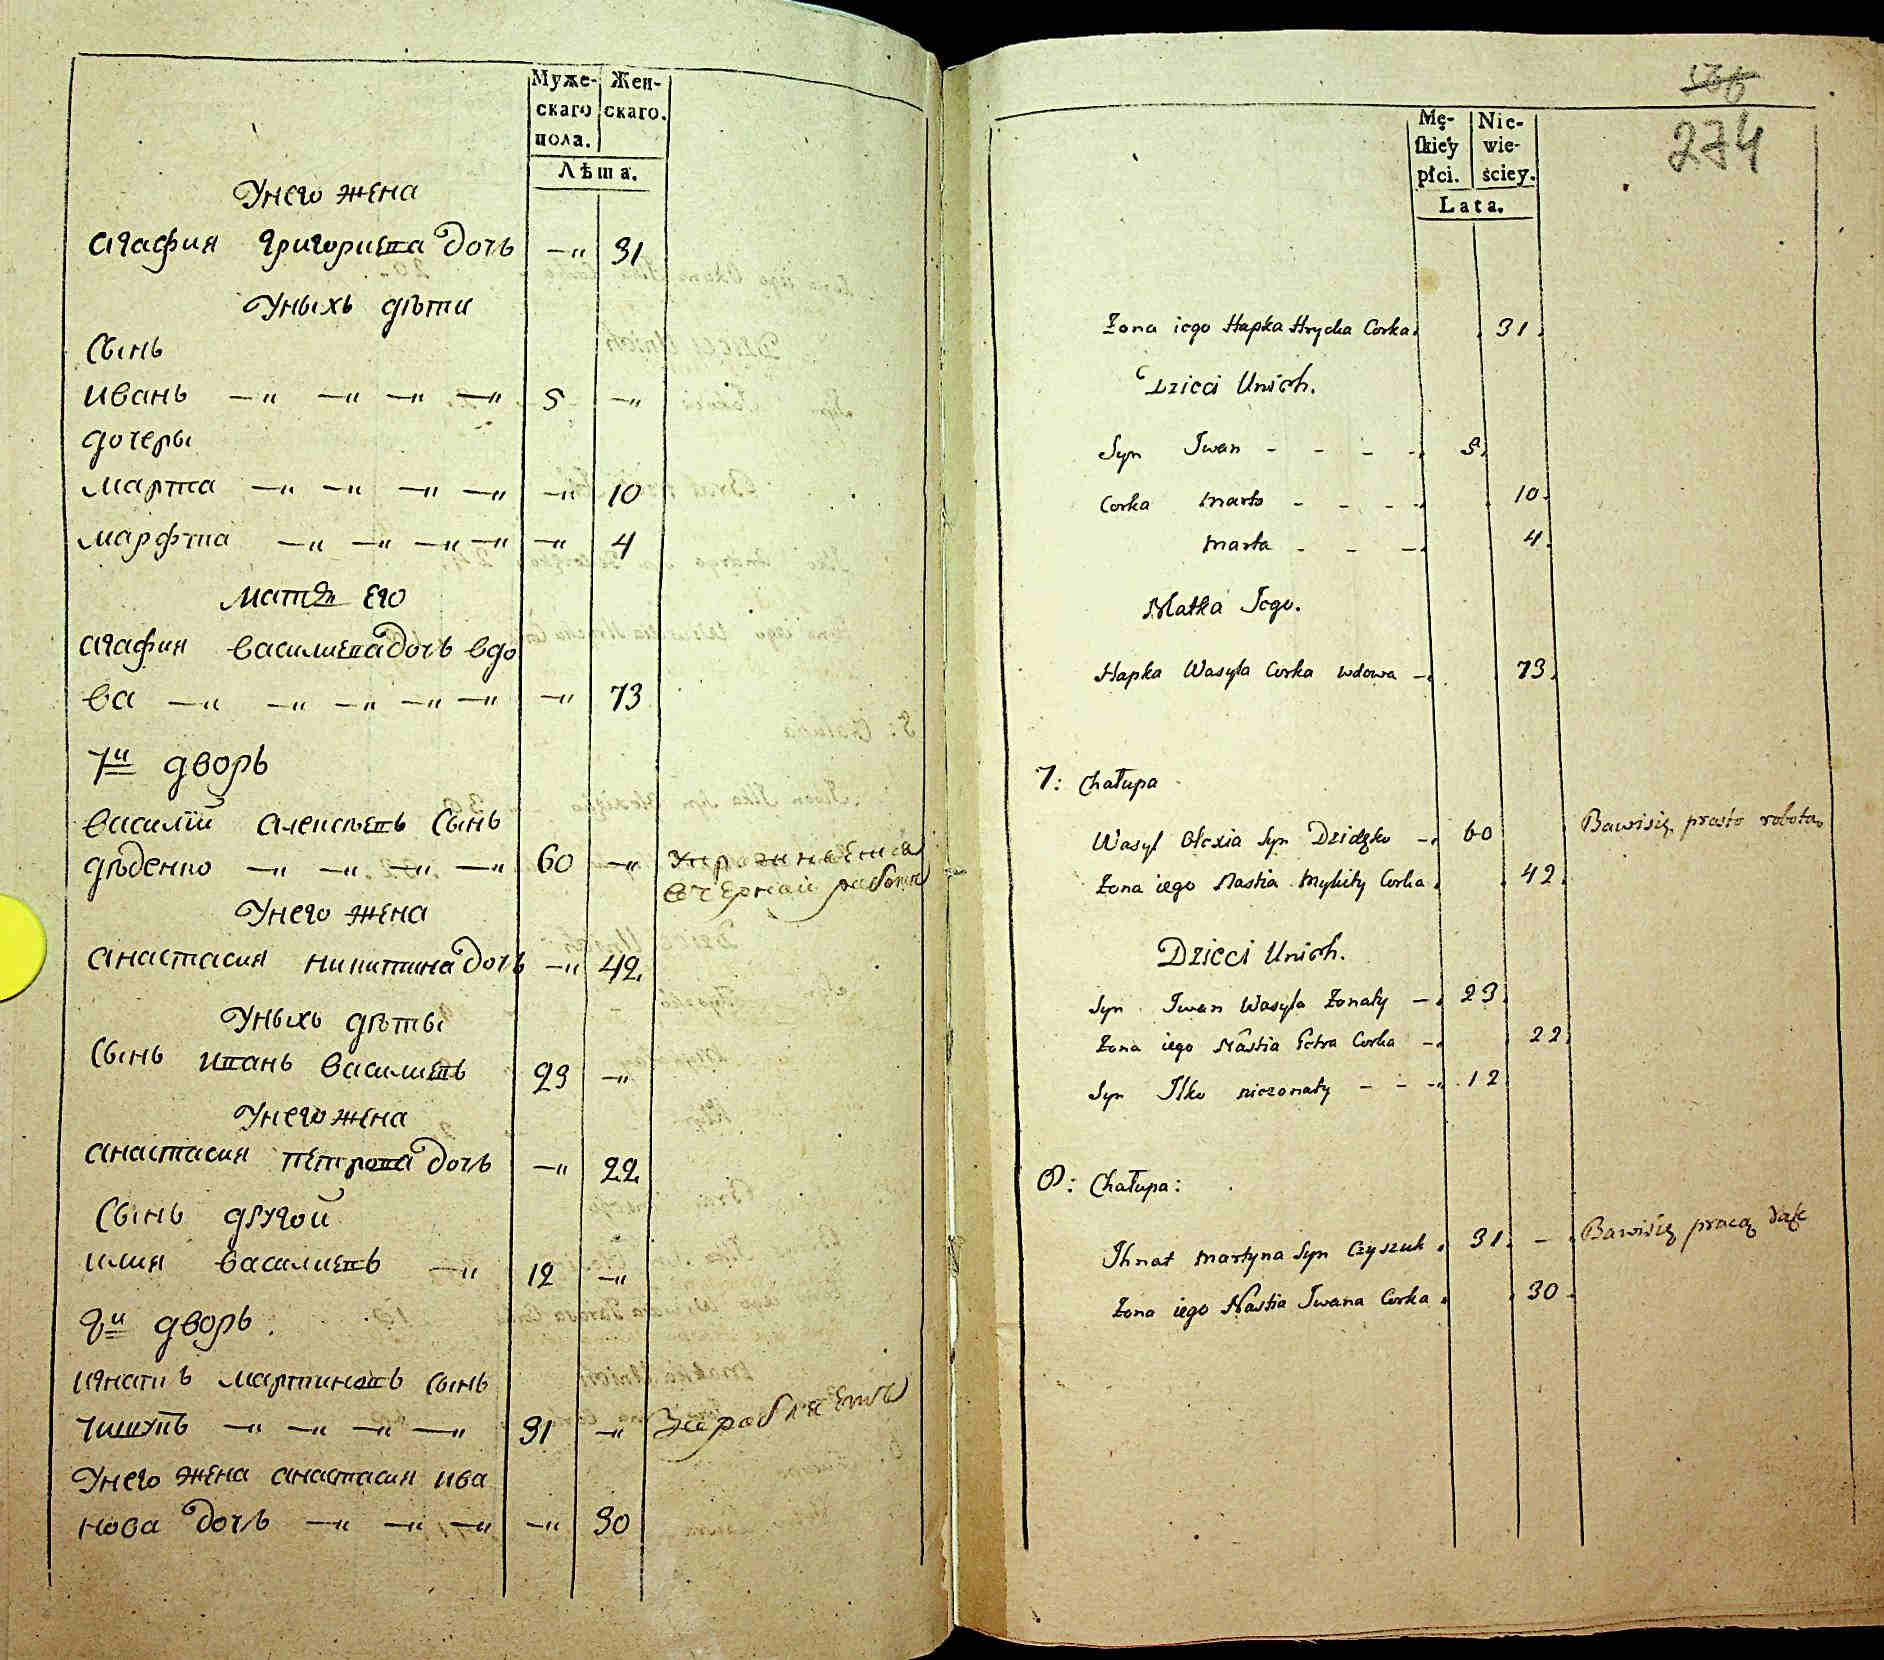 Муже-
скаго
пола.
Жен-
скаго.
Лѣта.
Унего жена
агафия григориева дочь —" 31
Уныхъ дѣти
Сынъ
иванъ —" —" —" —" 5 —"
дочеры
марта —" —" —" —" —" 10
марфта —" —" —" —" —" 4
мать его
агафия василиева дочь вдо
ва —" —" —" —" —" —" 73
7й дворъ
василий алексѣевъ Сынъ
дѣденко —" —" —" —" 60 —"
вчерной работи
Унего жена
анастасия никитина дочь —" 42
Уныхъ дѣты
Сынъ иванъ василиевъ 23 —"
Унего жена
анастасия петрова дочь —" 22
Сынъ другой
илия василиевъ —" 12 —"
8й дворъ.
игнатъ мартиновъ сынъ
чишукъ —" —" —" —" 31 —"
Унего жена анастасия ива
нова дочь —" —" —" —" 30
274
Mę-
skiey
płci.
Nie-
wie-
ściey.
Lata.
Żona iego Hapka Hrycka Corka. 31.
Dzieci Unich.
Syn Iwan - - - - 5.
Corka Marta - - - - 10.
Marta - - - 4.
Matka Iego.
Hapka Wasyla Corka wdowa - 73.
7: Chałupa
Wasyl Olexia Syn Dzidzko - 60 Bawisię prosto robotą
Żona iego Nastia Mykity Corka. 42.
Dzieci Unich.
Syn Iwan Wasyla Żonaty - 23.
Żona iego Nastia Petra Corka - 22.
Syn Ilko nieżonaty - - - 12
8: Chałupa:
Ihnat Martyna Syn Czyszuk. 31. - Bawisię pracą
Żona iego Nastia Iwana Corka. 30.